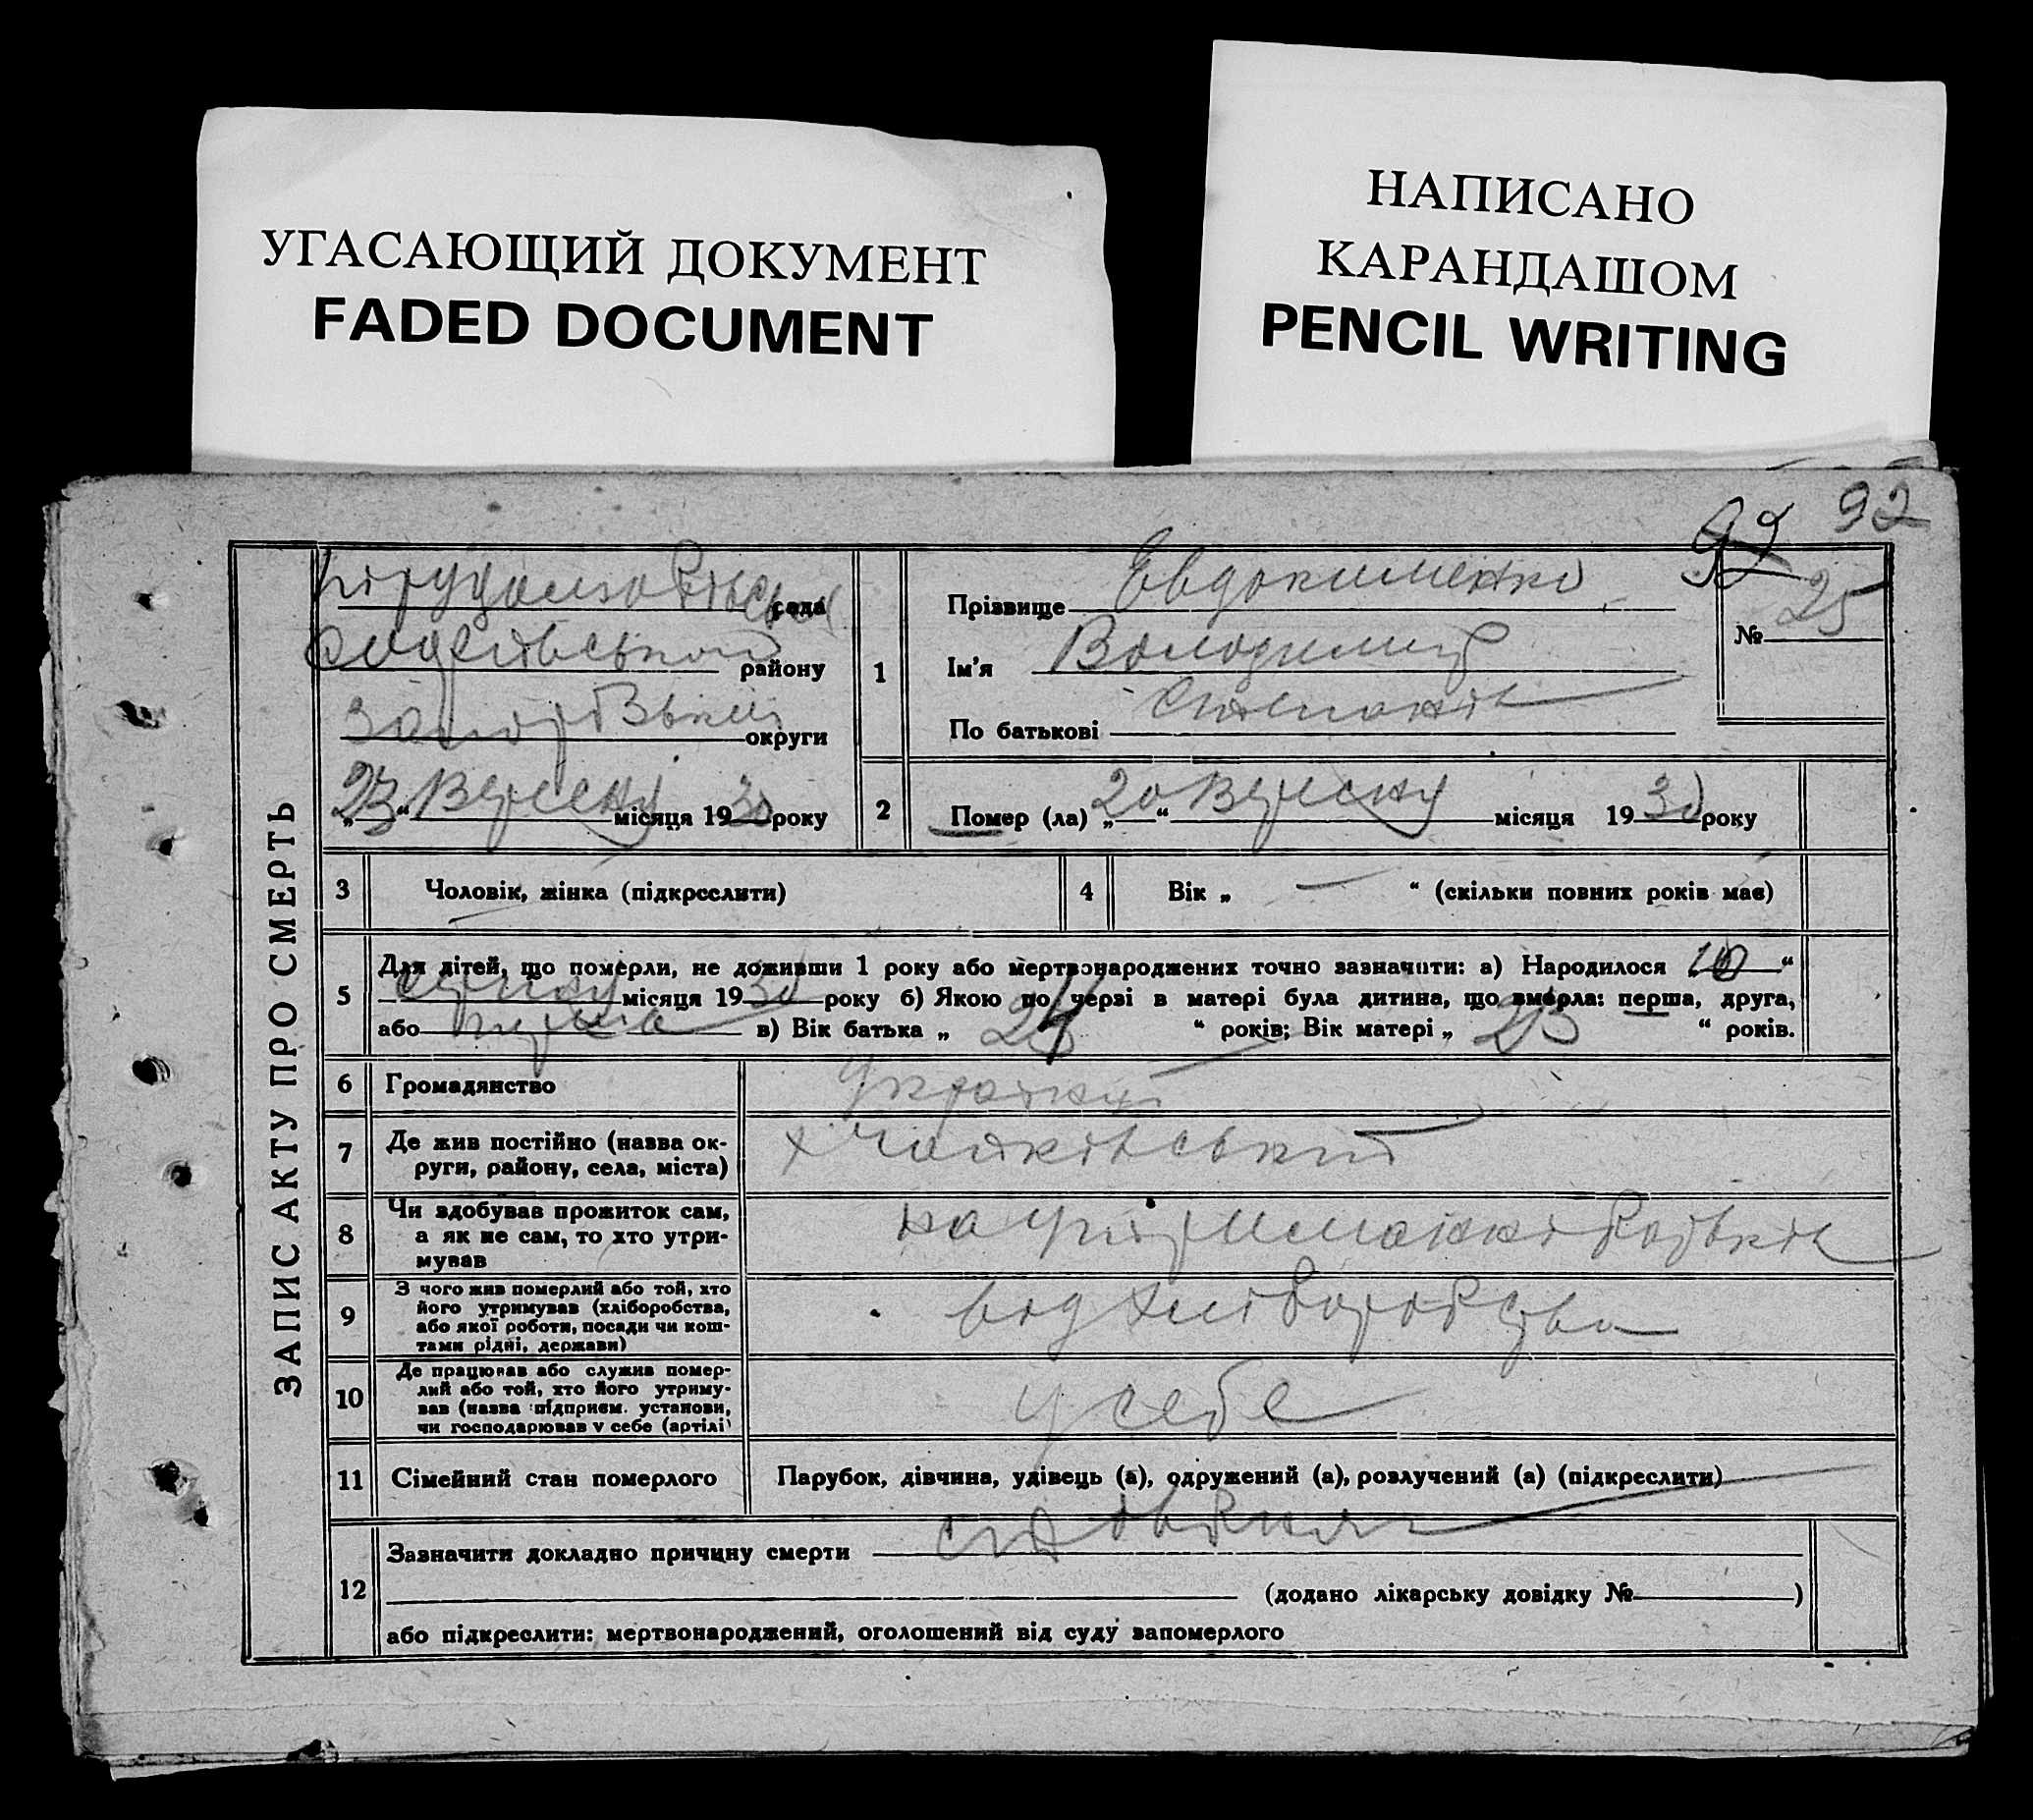 УГАСАЮЩИЙ ДОКУМЕНТ
FADED DOCUMENT
НАПИСАНО
КАРАНДАШОМ
PENCIL WRITING
92
ЗАПИС АКТУ ПРО СМЕРТЬ
села
району
округи
„23“ Вересня місяця 1930 року
1
Прізвище Евдокименко
Ім’я Володимир
По батькові
№ 25
2
Помер (ла) „20“ Вересня місяця 1930 року
3
Чоловік, жінка (підкреслити)
4
Вік „ — “ (скільки повних років має)
5
Для дітей, що померли, не доживши 1 року або мертвонароджених точно зазначити: а) Народилося 10 “
серпня місяця 1930 року б) Якою по черзі в матері була дитина, що вмерла: перша, друга,
або перша в) Вік батька „ “ років; Вік матері „ 23 “ років.
6
Громадянство
7
Де жив постійно (назва ок-
руги, району, села, міста)
8
Чи здобував прожиток сам,
а як не сам, то хто утри-
мував
на
9
З чого жив померлий або той, хто
його утримував (хліборобства,
або якої роботи, посади чи кош-
тами рідні, держави)
від хліборобства
10
Де працював або служив помер-
лий або той, хто його утриму-
вав (назва підприєм. установи,
чи господарював у себе (артілі)
у себе
11
Сімейний стан померлого
Парубок, дівчина, удівець (а), одружений (а), розлучений (а) (підкреслити)
12
Зазначити докладно причину смерти
(додано лікарську довідку № )
або підкреслити: мертвонароджений, оголошений від суду запомерлого